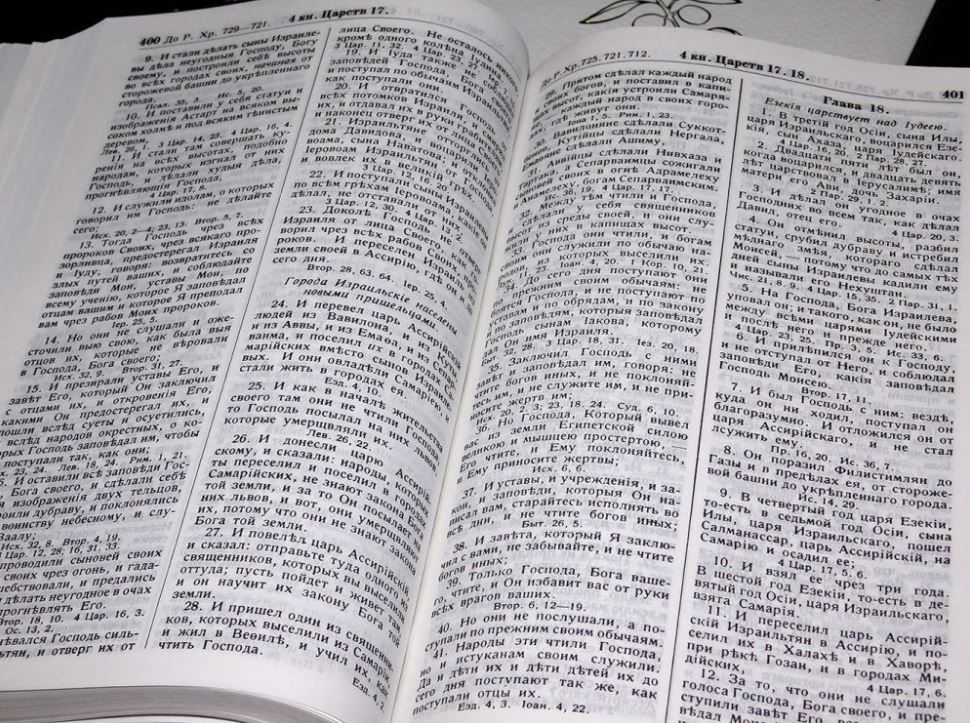 400 До Р. Хр. 729—721.
4 кн. Царств 17.
9. И стали дѣлать сыны Израиле-
вы дѣла неугодныя Господу, Богу
своему, и построили себѣ высоты
во всѣхъ городах своих, начиная от
сторожевой башни до укрѣпленнаго
города.
Псал. 35, 3. Ис. 5, 20.
10. И поставили у себя статуи и
изображенія Астарт на всяком вы-
соком холмѣ и под всяким тѣнистым
деревом.
Лев. 26, 1. 3 Цар. 14, 23. 4 Цар. 16, 4.
11. И стали там совершать ку-
ренія на всѣх высотах, подобно
народам, которых изгнал от них
Господь, и дѣлали худыя дѣла,
прогнѣвляющія Господа.
4 Цар. 17, 8.
12. И служили идолам, о которых
говорил им Господь: не дѣлайте
сего;
Исх. 20, 2—4; 23, 13. Втор. 5, 7.
13. Тогда Господь чрез всѣх
пророков Своих, чрез всякаго про-
зорливца, предостерегал Израиля
и Іуду, говоря: возвратитесь со
злых путей ваших, и соблюдайте
заповѣди Мои, уставы Мои, по
всему ученію, которое Я заповѣдал
отцам вашим и которое Я преподал
вам чрез рабов Моих пророков.
Іер. 25, 5.
14. Но они не слушали и оже-
сточили выю свою, как была выя
отцов их, которые не вѣровали
в Господа, Бога своего;
Исх. 32, 9. Втор. 31, 27.
15. И презирали уставы Его, и
завѣт Его, который Он заключил
с отцами их, и откровенія Его,
какими Он предостерегал их, и
пошли вслѣд суеты и осуетились,
вслѣд народов окрестных, о ко-
рых Господь заповѣдал им, чтобы
поступали так, как они;
23, 24. Лев. 18, 24. Рим. 1, 21.
И оставили всѣ заповѣди Гос-
Бога своего, и сдѣлали себѣ
изображенія двух тельцов,
роили дубраву, и поклонялись
воинству небесному, и слу-
Ваалу;
Исх. 32, 8. Втор. 4, 19.
Цар. 12, 28; 16, 31. 33.
проводили сыновей своих
своих чрез огонь, и гада-
шебствовали, и предались
дѣлать неугодное в очах
прогнѣвлять Его.
Втор. 18, 10. 4 Цар. 16, 3.
Ос. 13, 2.
гнѣвался Господь силь-
тян, и отверг их от
лица Своего. Не осталось никого,
кромѣ одного колѣна Іудина.
3 Цар. 11, 32. 4 Цар. 23, 27.
19. И Іуда также не соблюдал
заповѣдей Господа, Бога своего,
и поступал по обычаям Израильтян,
как поступали они.
20. И отвратился Господь от
всѣх потомков Израиля, и смирил
их, и отдавал их в руки грабителям,
и наконец отверг их от лица Своего.
21. Израильтяне отторглись от
дома Давидова, и воцарили Іеро-
воама, сына Наватова; и отвратил
Іеровоам Израильтян от Господа,
и вовлек их в великій грѣх.
3 Цар. 12, 19. 20.
22. И поступали сыны Израилевы
по всѣм грѣхам Іеровоама, какіе он
дѣлал, не отставали от них.
3 Цар. 12, 30. 4 Цар. 13, 2.
23. Доколѣ Господь не отверг
Израиля от лица Своего, как гово-
рил чрез всѣх рабов Своих, про-
роков. И переселен Израиль из
земли своей в Ассирію, гдѣ он и до
сего дня.
Втор. 28, 63. 64. Іер. 25, 4.
Города Израильскіе населены
новыми пришельцами.
24. И перевел царь Ассирійскій
людей из Вавилона, и из Куты,
и из Аввы, и из Емаѳа, и из Сепар-
ваима, и поселил их в городах Са-
марійских вмѣсто сынов Израиле-
вых. И они овладѣли Самаріею, и
стали жить в городах ея.
Езд. 4, 10.
25. И как в началѣ жительства
своего там они не чтили Господа,
то Господь посылал на них львов,
которые умерщвляли их.
Лев. 26, 22.
26. И донесли царю Ассирій-
скому, и сказали: народы, которых
ты переселил и поселил в городах
Самарійских, не знают закона Бога
той земли, и за то Он посылает на
них львов, и вот, они умерщвляют
их, потому что они не знают закона
Бога той земли.
27. И повелѣл царь Ассирійскій,
и сказал: отправьте туда одного из
священников, которых вы выселили
оттуда; пусть пойдет и живет там,
и он научит их закону Бога той
земли.
28. И пришел один из священни-
ков, которых выселили из Самаріи,
и жил в Веѳилѣ, и учил их, как
чтить Господа.
Езд. 4, 2.
До Р. Хр. 725. 721. 712.
4 кн. Царств 17. 18.
401
29. Притом сдѣлал каждый народ
своих богов, и поставил в капи-
высот, какія устроили Самаря-
каждый народ в своих горо-
гдѣ живут они.
1, 5. Рим. 1, 23.
30. Вавилоняне сдѣлали Суккот-
Кутійцы сдѣлали Нергала,
сдѣлали Ашиму,
31. Аввійцы сдѣлали Нивхаза и
Тартака, а Сепарваимцы сожигали
сыновей своих в огнѣ Адрамелеху
и Анамелеху, богам Сепарваимским.
Ис. 36, 19. 4 Цар. 17, 17.
32. Между тѣм чтили и Господа,
и сдѣлали у себя священников
высот из среды своей, и они слу-
жили у них в капищах высот.
33. Господа они чтили, и богам
своим они служили по обычаю на-
родов, из которых выселили их.
23. Іоан. 4, 20. 1 Кор. 10, 21.
34. До сего дня поступают они
по прежним своим обычаям: не
боятся Господа, и не поступают по
уставам и по обрядам, и по закону
и по заповѣдям, которыя заповѣдал
Господь сынам Іакова, которому
дал Он имя Израиля.
Быт. 32, 28. 3 Цар. 18, 31. Іез. 20, 18.
35. Заключил Господь с ними
завѣт и заповѣдал им, говоря: не
чтите богов иных, и не поклоняй-
тесь им, и не служите им, и не при-
носите жертв им;
Исх. 20, 2. 3; 23, 18. 24. Суд. 6, 10.
36. Но Господа, Который вывел
вас из земли Египетской силою
великою и мышцею простертою,—
Его чтите, и Ему поклоняйтесь,
и Ему приносите жертвы;
Исх. 6, 6.
37. И уставы, и учрежденія, и за-
кон, и заповѣди, которыя Он на-
писал вам, старайтесь исполнять во
всѣ дни, и не чтите богов иных;
Быт. 26, 5.
38. И завѣта, который Я заклю-
чил с вами, не забывайте, и не чтите
богов иных;
39. Только Господа, Бога ваше-
го, чтите, и Он избавит вас от руки
всѣх врагов ваших.
Втор. 6, 12—19.
40. Но они не послушали, а по-
ступали по прежним своим обычаям.
41. Народы эти чтили Господа,
но и истуканам своим служили.
Да и дѣти их и дѣти дѣтей их до
сего дня поступают так же, как
поступали отцы их.
Езд. 4, 3. Іоан. 4, 22.
Глава 18.
Езекія царствует над Іудею.
1. В третій год Осіи, сына Илы,
царя Израильскаго, воцарился Езе-
кія, сын Ахаза, царя Іудейскаго.
4 Цар. 16, 20. 2 Пар. 28, 27.
2. Двадцати пяти лѣт был он,
когда воцарился, и двадцать девять
лѣт царствовал в Іерусалимѣ; имя
матери его Ави, дочь Захаріи.
2 Пар. 29, 1. 2.
3. И дѣлал он угодное в очах
Господних во всем так, как дѣлал
Давид, отец его.
4 Цар. 20, 3.
4. Он отмѣнил высоты, разбил
статуи, срубил дубраву и истребил
мѣднаго змѣя, котораго сдѣлал
Моисей,— потому что до самых тѣх
дней сыны Израилевы кадили ему
и называли его Нехуштан.
Чис. 21, 8. 9. 4 Цар. 15, 35. 2 Пар. 31, 1.
5. На Господа, Бога Израилева
уповал он; и такого, как он, не было
между всѣми царями Іудейскими
и послѣ него и прежде него.
4 Цар. 23, 25. Пр. 3, 5. Ис. 33, 6.
6. И прилѣпился он к Господу,
и не отступал от Него, и соблюдал
заповѣди Его, какія заповѣдал
Господь Моисею.
Втор. 17, 11.
7. И был Господь с ним: вездѣ,
куда он ни ходил, поступал он
благоразумно. И отложился он от
царя Ассирійскаго, и не стал
служить ему.
Пр. 16, 20. Ис. 36, 7.
8. Он поразил Филистимлян до
Газы и в предѣлах ея, от стороже-
вой башни до укрѣпленнаго города.
Ис. 14, 29.
9. В четвертый год царя Езекіи,
то-есть в седьмой год Осіи, сына
Илы, царя Израильскаго, пошел
Салманассар, царь Ассирійскій, на
Самарію и осадил ее;
4 Цар. 17, 5. 6.
10. И взял ее чрез три года.
В шестой год Езекіи, то-есть в де-
вятый год Осіи, царя Израильскаго,
взята Самарія.
11. И переселил царь Ассирій-
скій Израильтян в Ассирію, и по-
селил их в Халахѣ и в Хаворѣ,
при рѣкѣ Гозан, и в городах Ми-
дійских,
4 Цар. 17, 6.
12. За то, что они не слушали
голоса Господа, Бога своего, и пре-
ступили завѣт Его, все, что запо-
вѣдал Мои